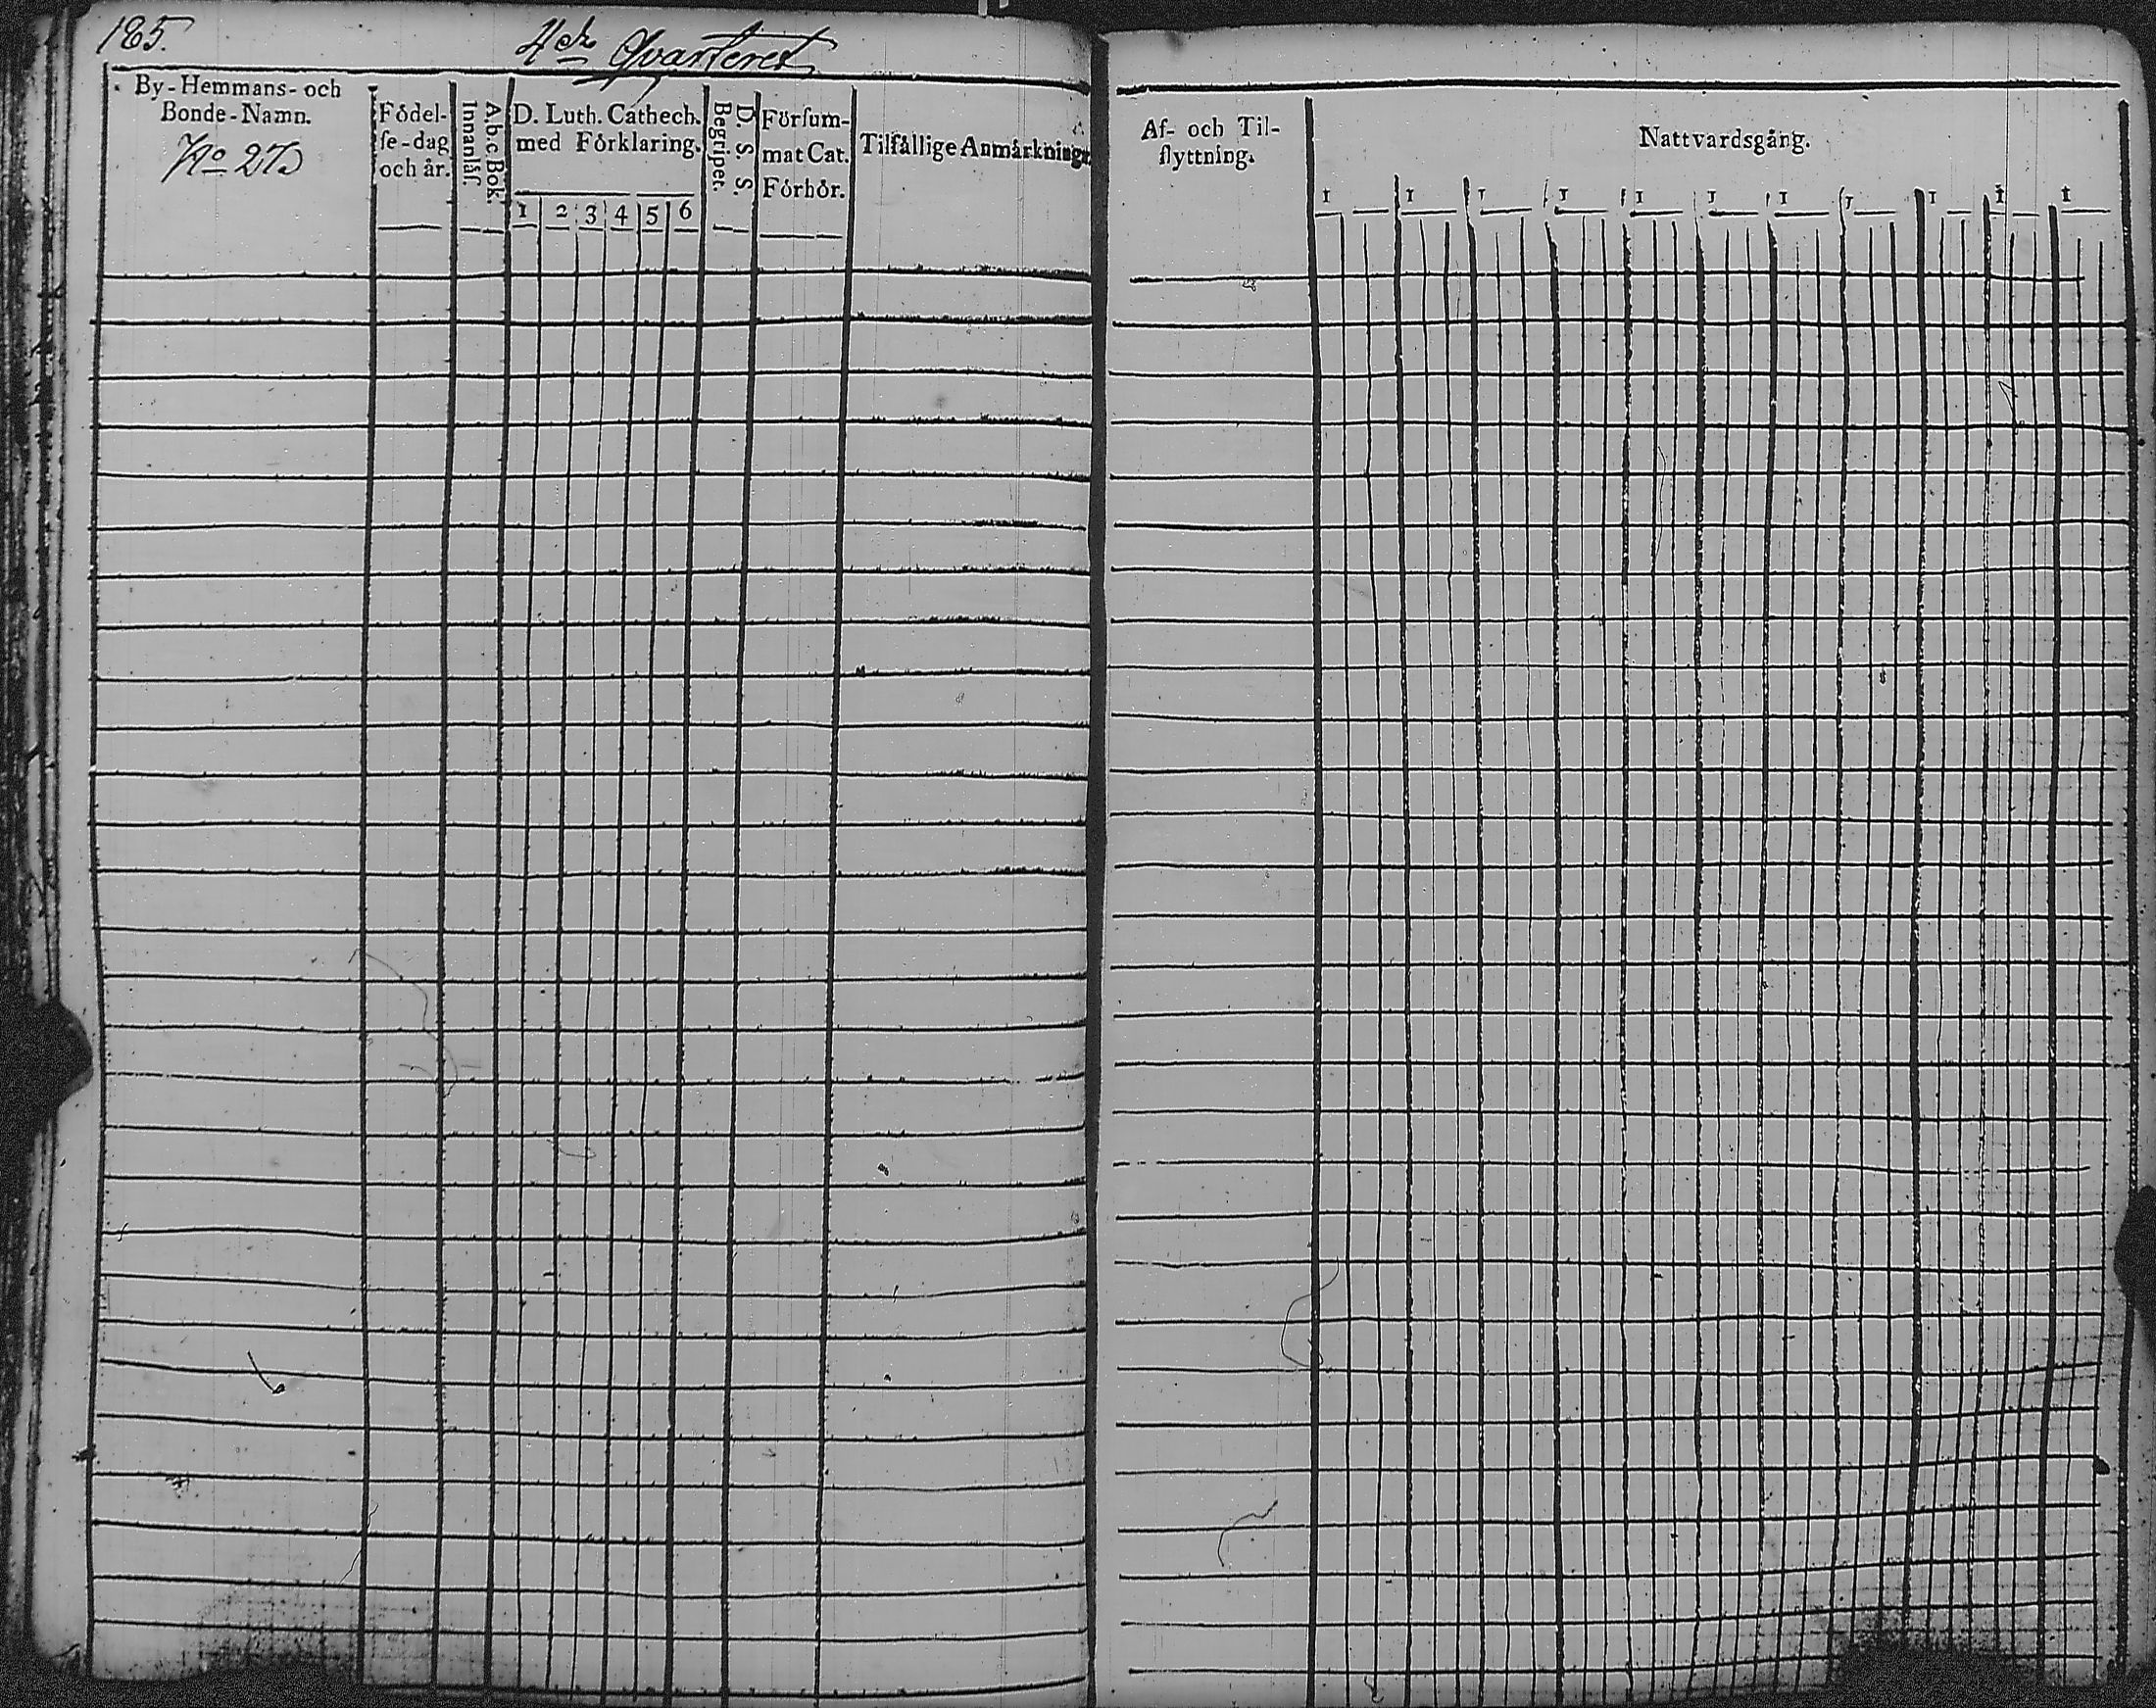 185.
4de Qvarteret
By-Hemmans- och
Bonde-Namn.
No 273
Födel-
se-dag
och år.
A b c Bok.
Innanläs.
D. Luth. Cathech.
med Förklaring.
1 2 3 4 5 6
D. S. S.
Begriper.
Försum-
mat Cat.
Förhör.
Tilfällige Anmärkningar
Af- och Til-
flyttning.
Nattvardsgång.
1 1 1 1 1 1 1 1 1 1 1